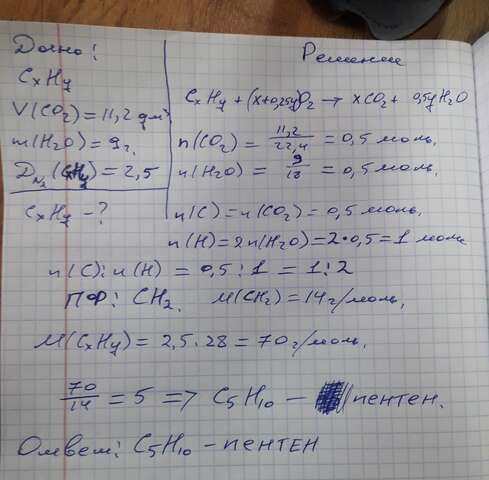 Дано:
CxHy
V(CO₂) = 11,2 дм³
m(H₂O) = 9г.
D_N₂(CxHy) = 2,5
CxHy - ?
Решение
CxHy + (x+0,25y)O₂ → xCO₂ + 0,5yH₂O
n(CO₂) = 11,2/22,4 = 0,5 моль.
n(H₂O) = 9/18 = 0,5 моль.
n(C) = n(CO₂) = 0,5 моль.
n(H) = 2n(H₂O) = 2·0,5 = 1 моль
n(C) : n(H) = 0,5 : 1 = 1 : 2
ПФ: CH₂. M(CH₂) = 14 г/моль.
M(CxHy) = 2,5 · 28 = 70 г/моль.
70/14 = 5 => C₅H₁₀ - пентен.
Ответ: C₅H₁₀ - пентен